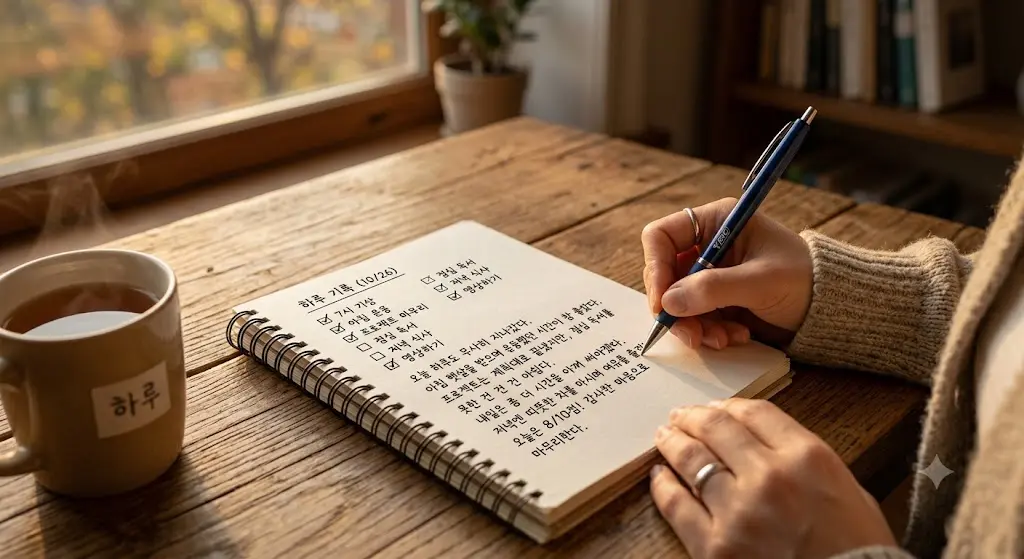 하루
하루 기록 (10/26)
☑ 7시 기상
☑ 아침 운동
☑ 프로젝트 마무리
☐ 점심 독서
☐ 저녁 식사
☑ 명상하기
☐ 점심 독서
☑ 저녁 식사
☑ 명상하기
오늘 하루도 무사히 지나갔다.
아침 햇살을 받으며 운동했던 시간이 참 좋았다.
프로젝트는 계획대로 끝났지만, 점심 독서를
못한 건 건 아쉽다.
내일은 좀 더 시간을 아껴 써야겠다.
저녁엔 따뜻한 차를 마시며 여유를 즐긴
오늘은 8/10점! 감사한 마음으로
마무리한다.